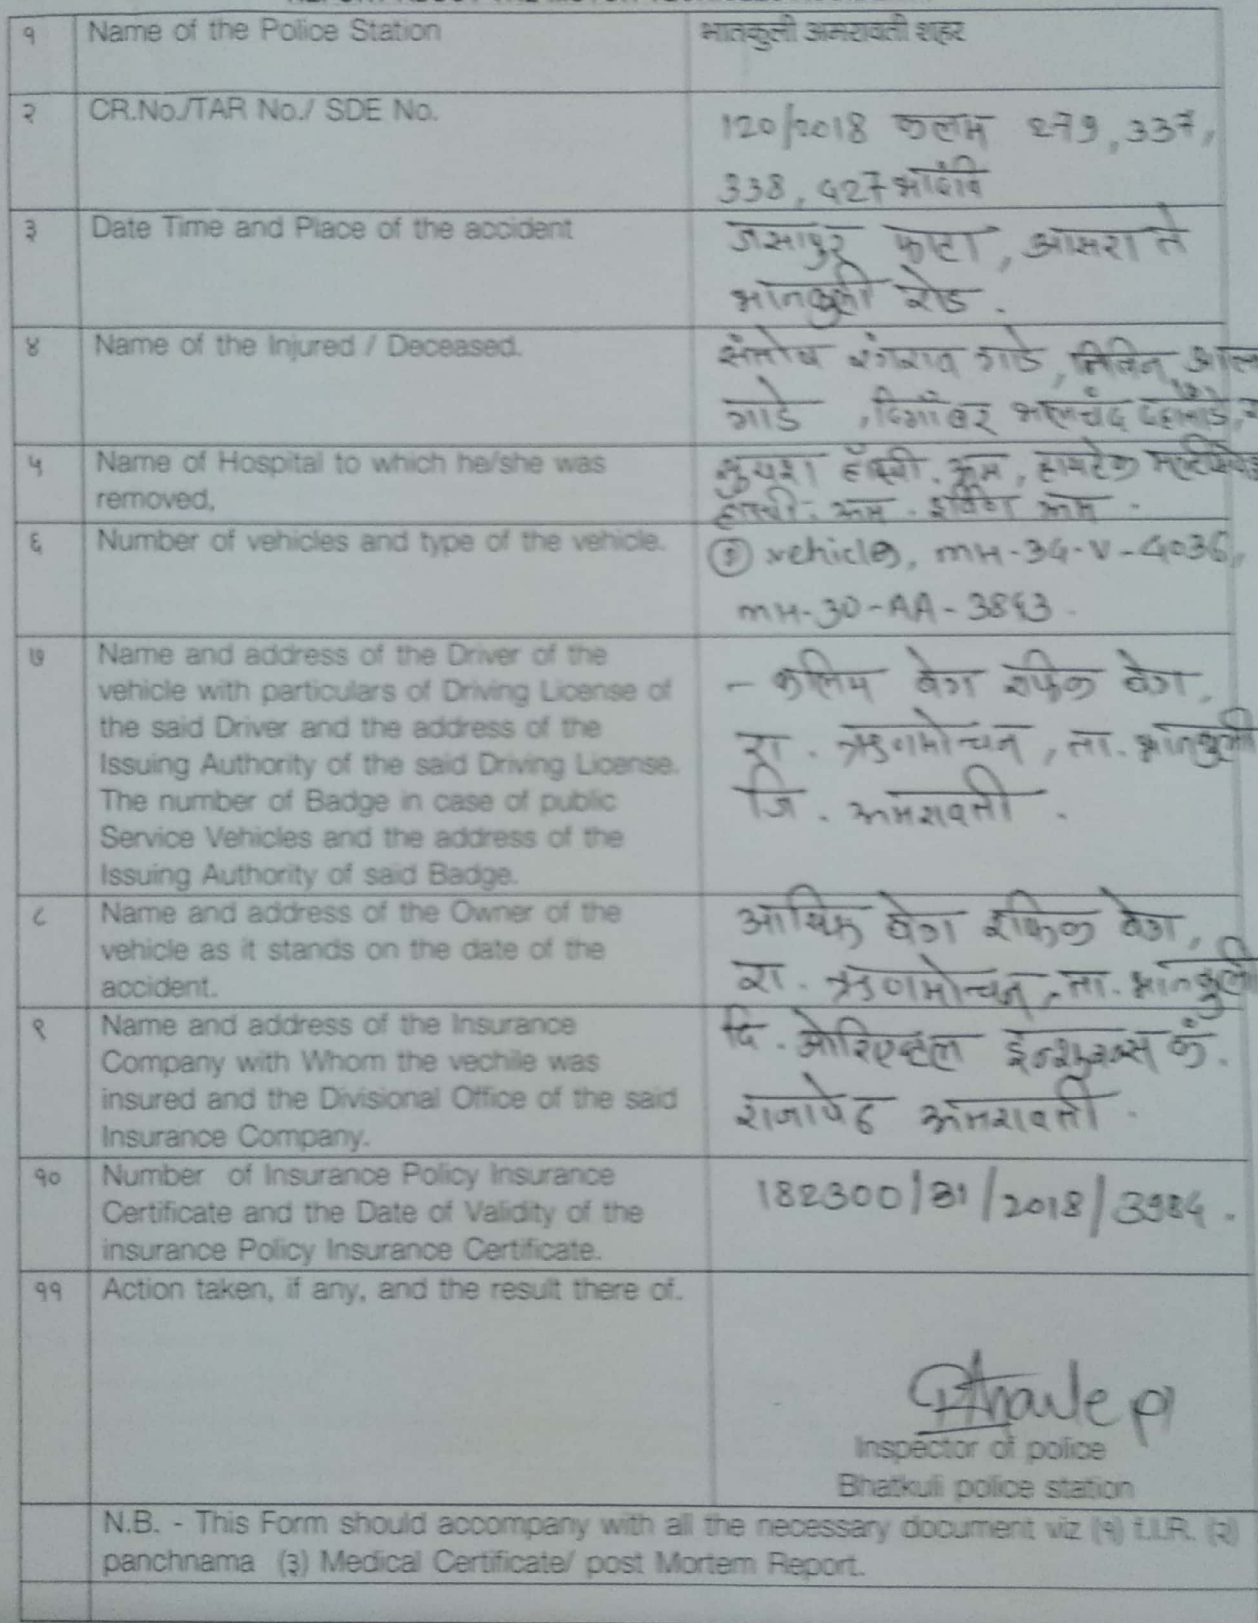 १ Name of the Police Station भातकुली अमरावती शहर
२ CR.No./TAR No./ SDE No. 120/2018 कलम २79, 337,
338, 427 भादवि
३ Date Time and Place of the accident जसापुर फाटा, आसरा ते
भातकुली रोड.
४ Name of the Injured / Deceased. संतोष रंगराव गाडे, नितिन
गाडे, दिगांबर भालचंद्र
५ Name of Hospital to which he/she was सुयश हॉस्पी. अम, हायटेक
removed, हास्पी. अम. इर्विन अम.
६ Number of vehicles and type of the vehicle. vehicles, MH-34-V-4036,
MH-30-AA-3863.
७ Name and address of the Driver of the
vehicle with particulars of Driving License of - कलिम बेग रफिक बेग,
the said Driver and the address of the रा. ऋणमोचन, ता. भातकुली
Issuing Authority of the said Driving License.
The number of Badge in case of public जि. अमरावती.
Service Vehicles and the address of the
Issuing Authority of said Badge.
८ Name and address of the Owner of the बेग रफिक बेग,
vehicle as it stands on the date of the
accident. रा. ऋणमोचन, ता. भातकुली
९ Name and address of the Insurance दि. ओरिएन्टल इन्शुरन्स कं.
Company with Whom the vechile was
insured and the Divisional Office of the said राजापेठ अमरावती.
Insurance Company.
१० Number of Insurance Policy Insurance 182300/31/2018/3984.
Certificate and the Date of Validity of the
insurance Policy Insurance Certificate.
११ Action taken, if any, and the result there of.
Inspector of police
Bhatkuli police station
N.B. - This Form should accompany with all the necessary document viz (१) f.I.R. (२)
panchnama (३) Medical Certificate/ post Mortem Report.